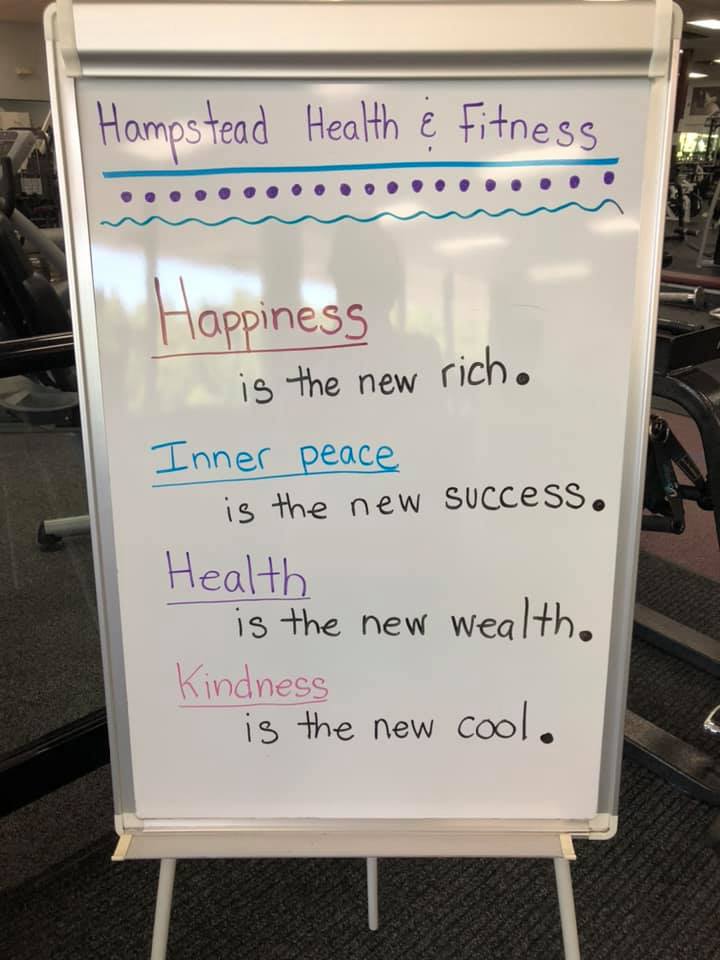 Hampstead Health & Fitness
Happiness
is the new rich.
Inner peace
is the new success.
Health
is the new wealth.
Kindness
is the new cool.